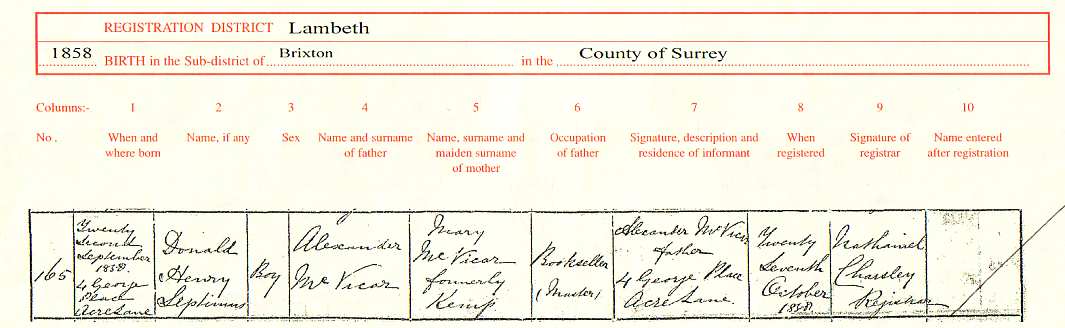 REGISTRATION DISTRICT Lambeth
1858 BIRTH in the Sub-district of Brixton in the County of Surrey
Columns:- 1 2 3 4 5 6 7 8 9 10
No. When and where born
Name, if any
Sex
Name and surname of father
Name, surname and maiden surname of mother
Occupation of father
Signature, description and residence of informant
When registered
Signature of registrar
Name entered after registration
165
Twenty
Second
September
1858.
4 George
Place
Acre Lane
Donald
Henry
Septimus
Boy
Alexander
Mc Vicar
Mary
Mc Vicar
formerly
Kemp
Bookseller
(Master)
Alexander McVicar
father
4 George Place
Acre Lane.
Twenty
Seventh
October
1858
Nathaniel
Charsley
Registrar